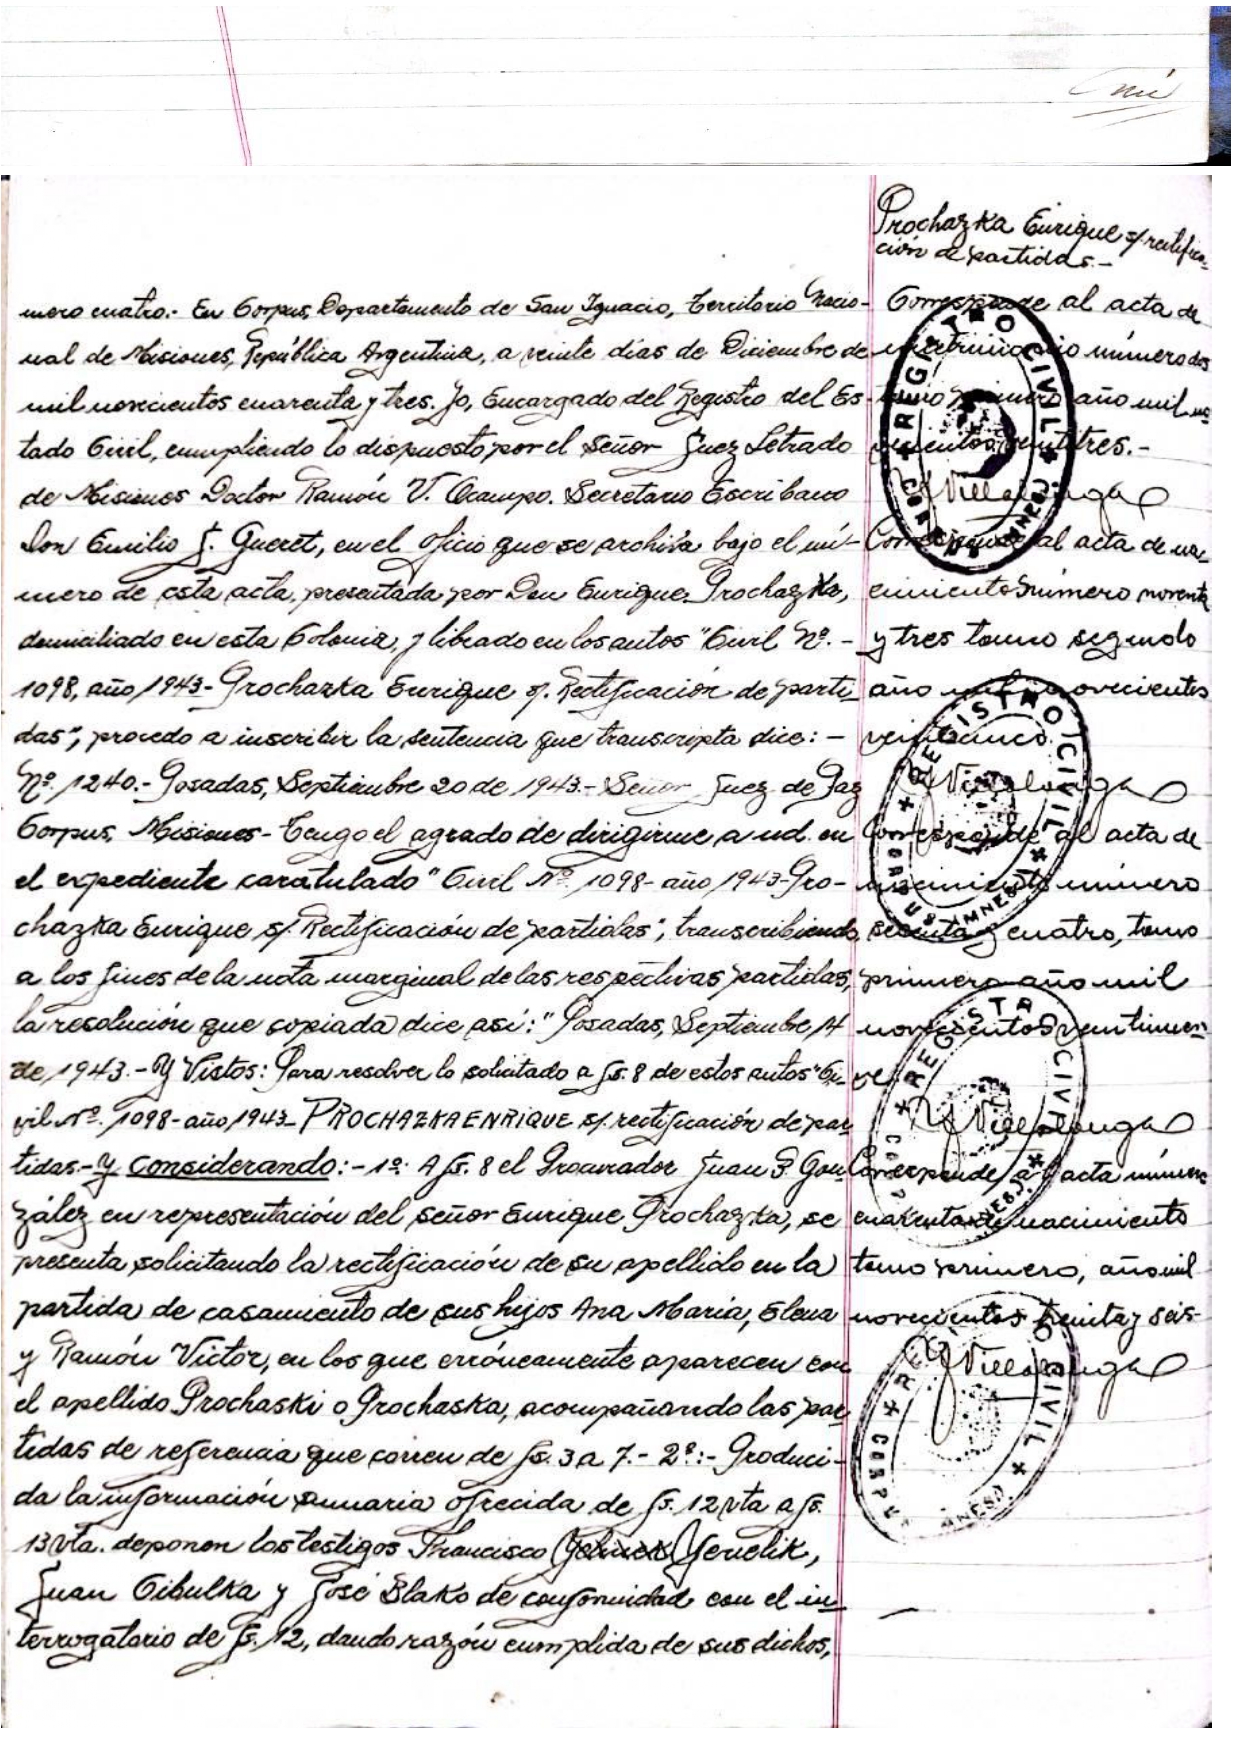 nú
Prochazka Enrique s/ rectifica-
ción de partidas.-
mero cuatro.- En Corpus, Departamento de San Ignacio, Territorio Nacio-
nal de Misiones, República Argentina, a veinte días de Diciembre de
mil novecientos cuarenta y tres. Yo, Encargado del Registro del Es-
tado Civil, cumpliendo lo dispuesto por el Señor Juez Letrado
de Misiones Doctor Ramón V. Ocampo. Secretario Escribano
Don Emilio J. Gueret, en el oficio que se archiva bajo el nú-
mero de esta acta, presentada por Don Enrique Prochazka,
domiciliado en esta Colonia, y librado en los autos "Civil Nº.-
1098, año 1943- Prochazka Enrique s/. Rectificación de parti-
das", procedo a inscribir la sentencia que transcripta dice: -
Nº. 1240.- Posadas, Septiembre 20 de 1943.- Señor Juez de Paz
Corpus, Misiones- Tengo el agrado de dirigirme a ud. en
el expediente caratulado "Civil Nº. 1098- año 1943- Pro-
chazka Enrique s/. Rectificación de partidas", transcribiendo,
a los fines de la nota marginal de las respectivas partidas,
la resolución que copiada dice así: "Posadas, Septiembre 14
de 1943.- Y Vistos: Para resolver lo solicitado a fs. 8 de estos autos "Ci-
vil Nº. 1098- año 1943- PROCHAZKA ENRIQUE s/. rectificación de par-
tidas.- Y Considerando: - 1º: A fs. 8 el Procurador Juan P. Gon-
zález en representación del señor Enrique Prochazka, se
presenta solicitando la rectificación de su apellido en la
partida de casamiento de sus hijos Ana María, Elena
y Ramón Victor, en los que erróneamente aparecen con
el apellido Prochaski o Prochaska, acompañando las par-
tidas de referencia que corren de fs. 3 a 7.- 2º:- Produci-
da la información sumaria ofrecida de fs. 12 vta a fs.
13 vta. deponen los testigos Francisco Jenelik,
Juan Cibulka y José Blako de conformidad con el in-
terrogatorio de fs. 12, dando razón cumplida de sus dichos,
Corresponde al acta de
matrimonio número dos
tomo primero año mil no-
vecientos veintitres.-
Villalonga
Corresponde al acta de na-
cimiento número noventa
y tres tomo segundo
año mil novecientos
veinticinco.
Villalonga
Corresponde al acta de
nacimiento número
sesenta y cuatro, tomo
primero año mil
novecientos veintinue-
ve
Villalonga
Corresponde al acta número
cuarenta de nacimiento
tomo primero, año mil
novecientos treinta y seis-
Villalonga
REGISTRO CIVIL
CORPUS
REGISTRO CIVIL
CORPUS
REGISTRO CIVIL
REGISTRO CIVIL
CORPUS